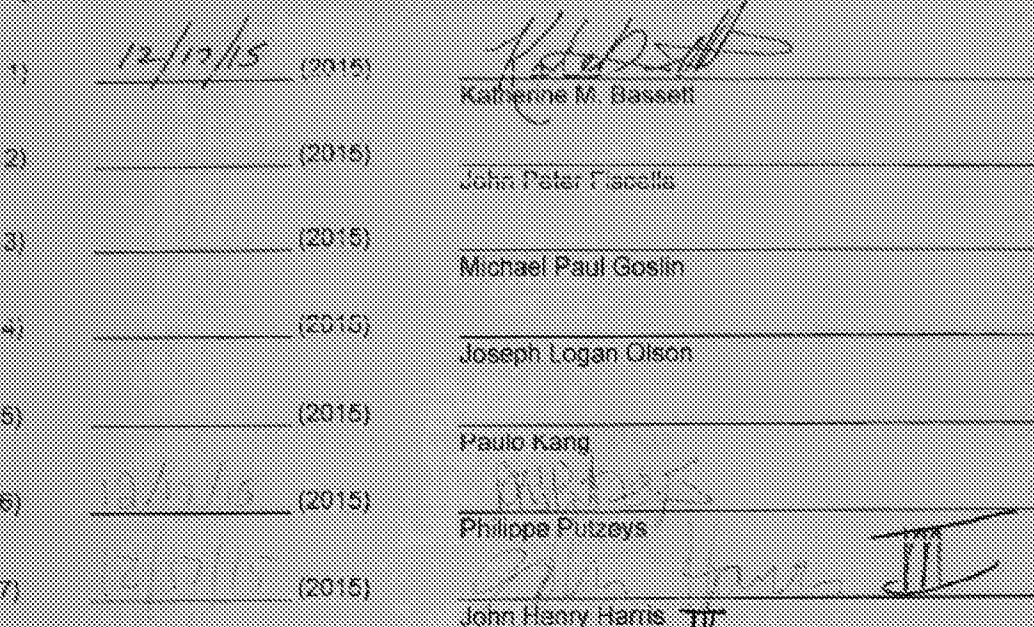 1) 12/17/15 (2015)
Katherine M. Bassett
2) (2015)
John Peter Fiacella
3) (2015)
Michael Paul Goslin
4) (2015)
Joseph Logan Olson
5) (2015)
Paulo Kang
6) (2015)
Philippe Putzeys
7) (2015) III
John Henry Harris III